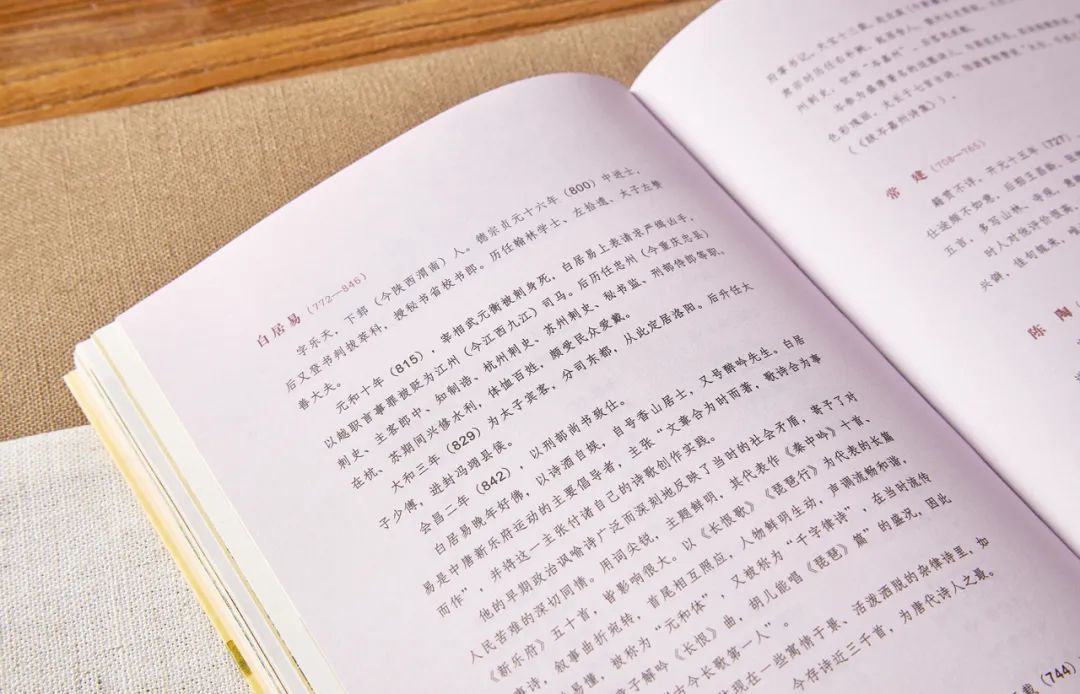 白居易（772—846）
字乐天，下邽（今陕西渭南）人。德宗贞元十六年（800）中进士，
后又登书判拔萃科，授秘书省校书郎。历任翰林学士、左拾遗、太子左赞
善大夫。
元和十年（815），宰相武元衡被刺身死，白居易上表请求严缉凶手，
以越职言事罪被贬为江州（今江西九江）司马。后历任忠州（今重庆忠县）
刺史、主客郎中、知制诰、杭州刺史、苏州刺史、秘书监、刑部侍郎等职。
在杭、苏期间兴修水利，体恤百姓，颇受民众爱戴。
大和三年（829）为太子宾客，分司东都，从此定居洛阳。后升任太
子少傅，进封冯翊县侯。
会昌二年（842），以刑部尚书致仕。
白居易晚年好佛，以诗酒自娱，自号香山居士，又号醉吟先生。白居
易是中唐新乐府运动的主要倡导者，主张“文章合为时而著，歌诗合为事
而作”，并将这一主张付诸自己的诗歌创作实践。
他的早期政治讽喻诗广泛而深刻地反映了当时的社会矛盾，寄予了对
人民苦难的深切同情。用词尖锐，主题鲜明，其代表作《秦中吟》十首、
《新乐府》五十首，皆影响很大。以《长恨歌》《琵琶行》为代表的长篇
事诗，叙事曲折宛转，首尾相互照应，人物鲜明生动，声调流畅和谐，
易懂，被称为“元和体”，又被称为“千字律诗”，在当时流传
童子解吟《长恨》曲，胡儿能唱《琵琶》篇”的盛况，因此
古今长歌第一人”。
现在一些寓情于景、活泼洒脱的杂律诗里，如
今存诗近三千首，为唐代诗人之最。
（744）
府掌书记，
州刺史，世称“岑嘉州”
岑参为盛唐著名的边塞诗人
色彩瑰丽，尤长于七言古诗，
（《跋岑嘉州诗集》）。
常建（708—765）
籍贯不详，开元十五年（727），
仕途颇不如意，后招王昌龄、
五首，多写山林、寺观，意
时人对他评价很高，
兴僻，佳句辄来，唯
陈陶